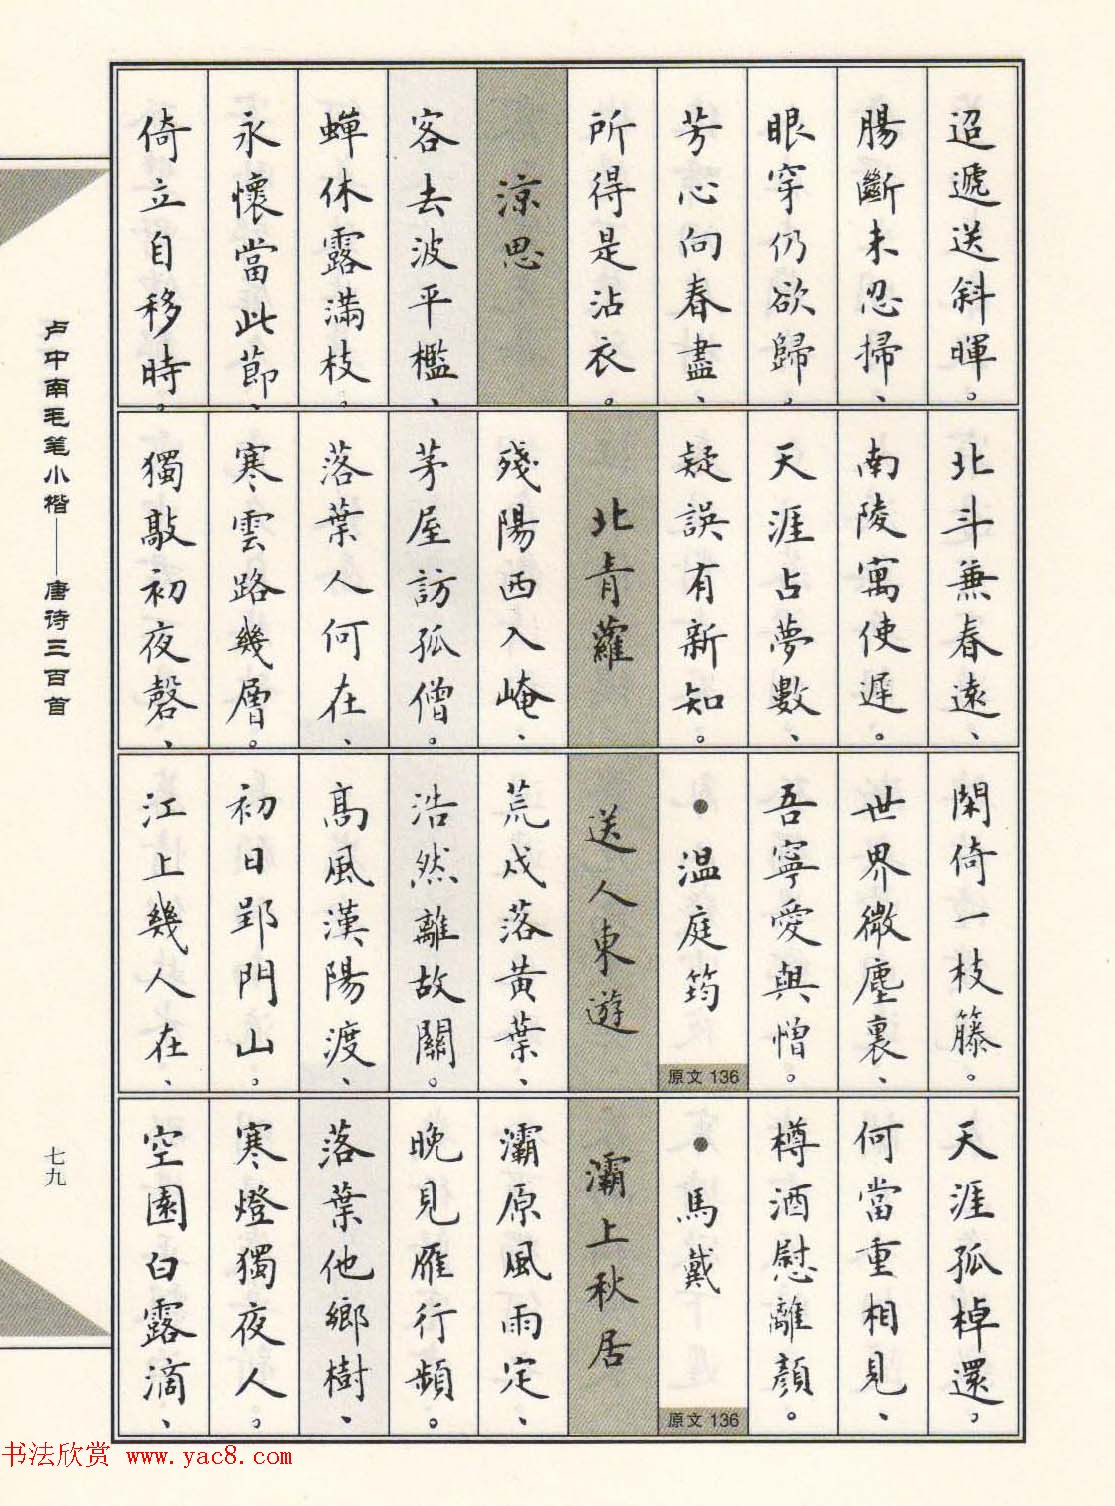 迢遞送斜暉。
腸斷未忍掃、
眼穿仍欲歸。
芳心向春盡、
所得是沾衣。
涼思
客去波平檻、
蟬休露滿枝。
永懷當此節、
倚立自移時。
北斗兼春遠、
南陵寓使遲。
天涯占夢數、
疑誤有新知。
北青蘿
殘陽西入崦、
茅屋訪孤僧。
落葉人何在、
寒雲路幾層。
獨敲初夜磬、
閑倚一枝藤。
世界微塵裏、
吾寧愛與憎。
●温庭筠
原文 136
送人東遊
荒戍落黃葉、
浩然離故關。
高風漢陽渡、
初日郢門山。
江上幾人在、
天涯孤棹還。
何當重相見、
樽酒慰離顏。
●馬戴
原文 136
灞上秋居
灞原風雨定、
晚見雁行頻。
落葉他鄉樹、
寒燈獨夜人。
空園白露滴、
卢中南毛笔小楷——唐诗三百首
七九
书法欣赏 www.yac8.com